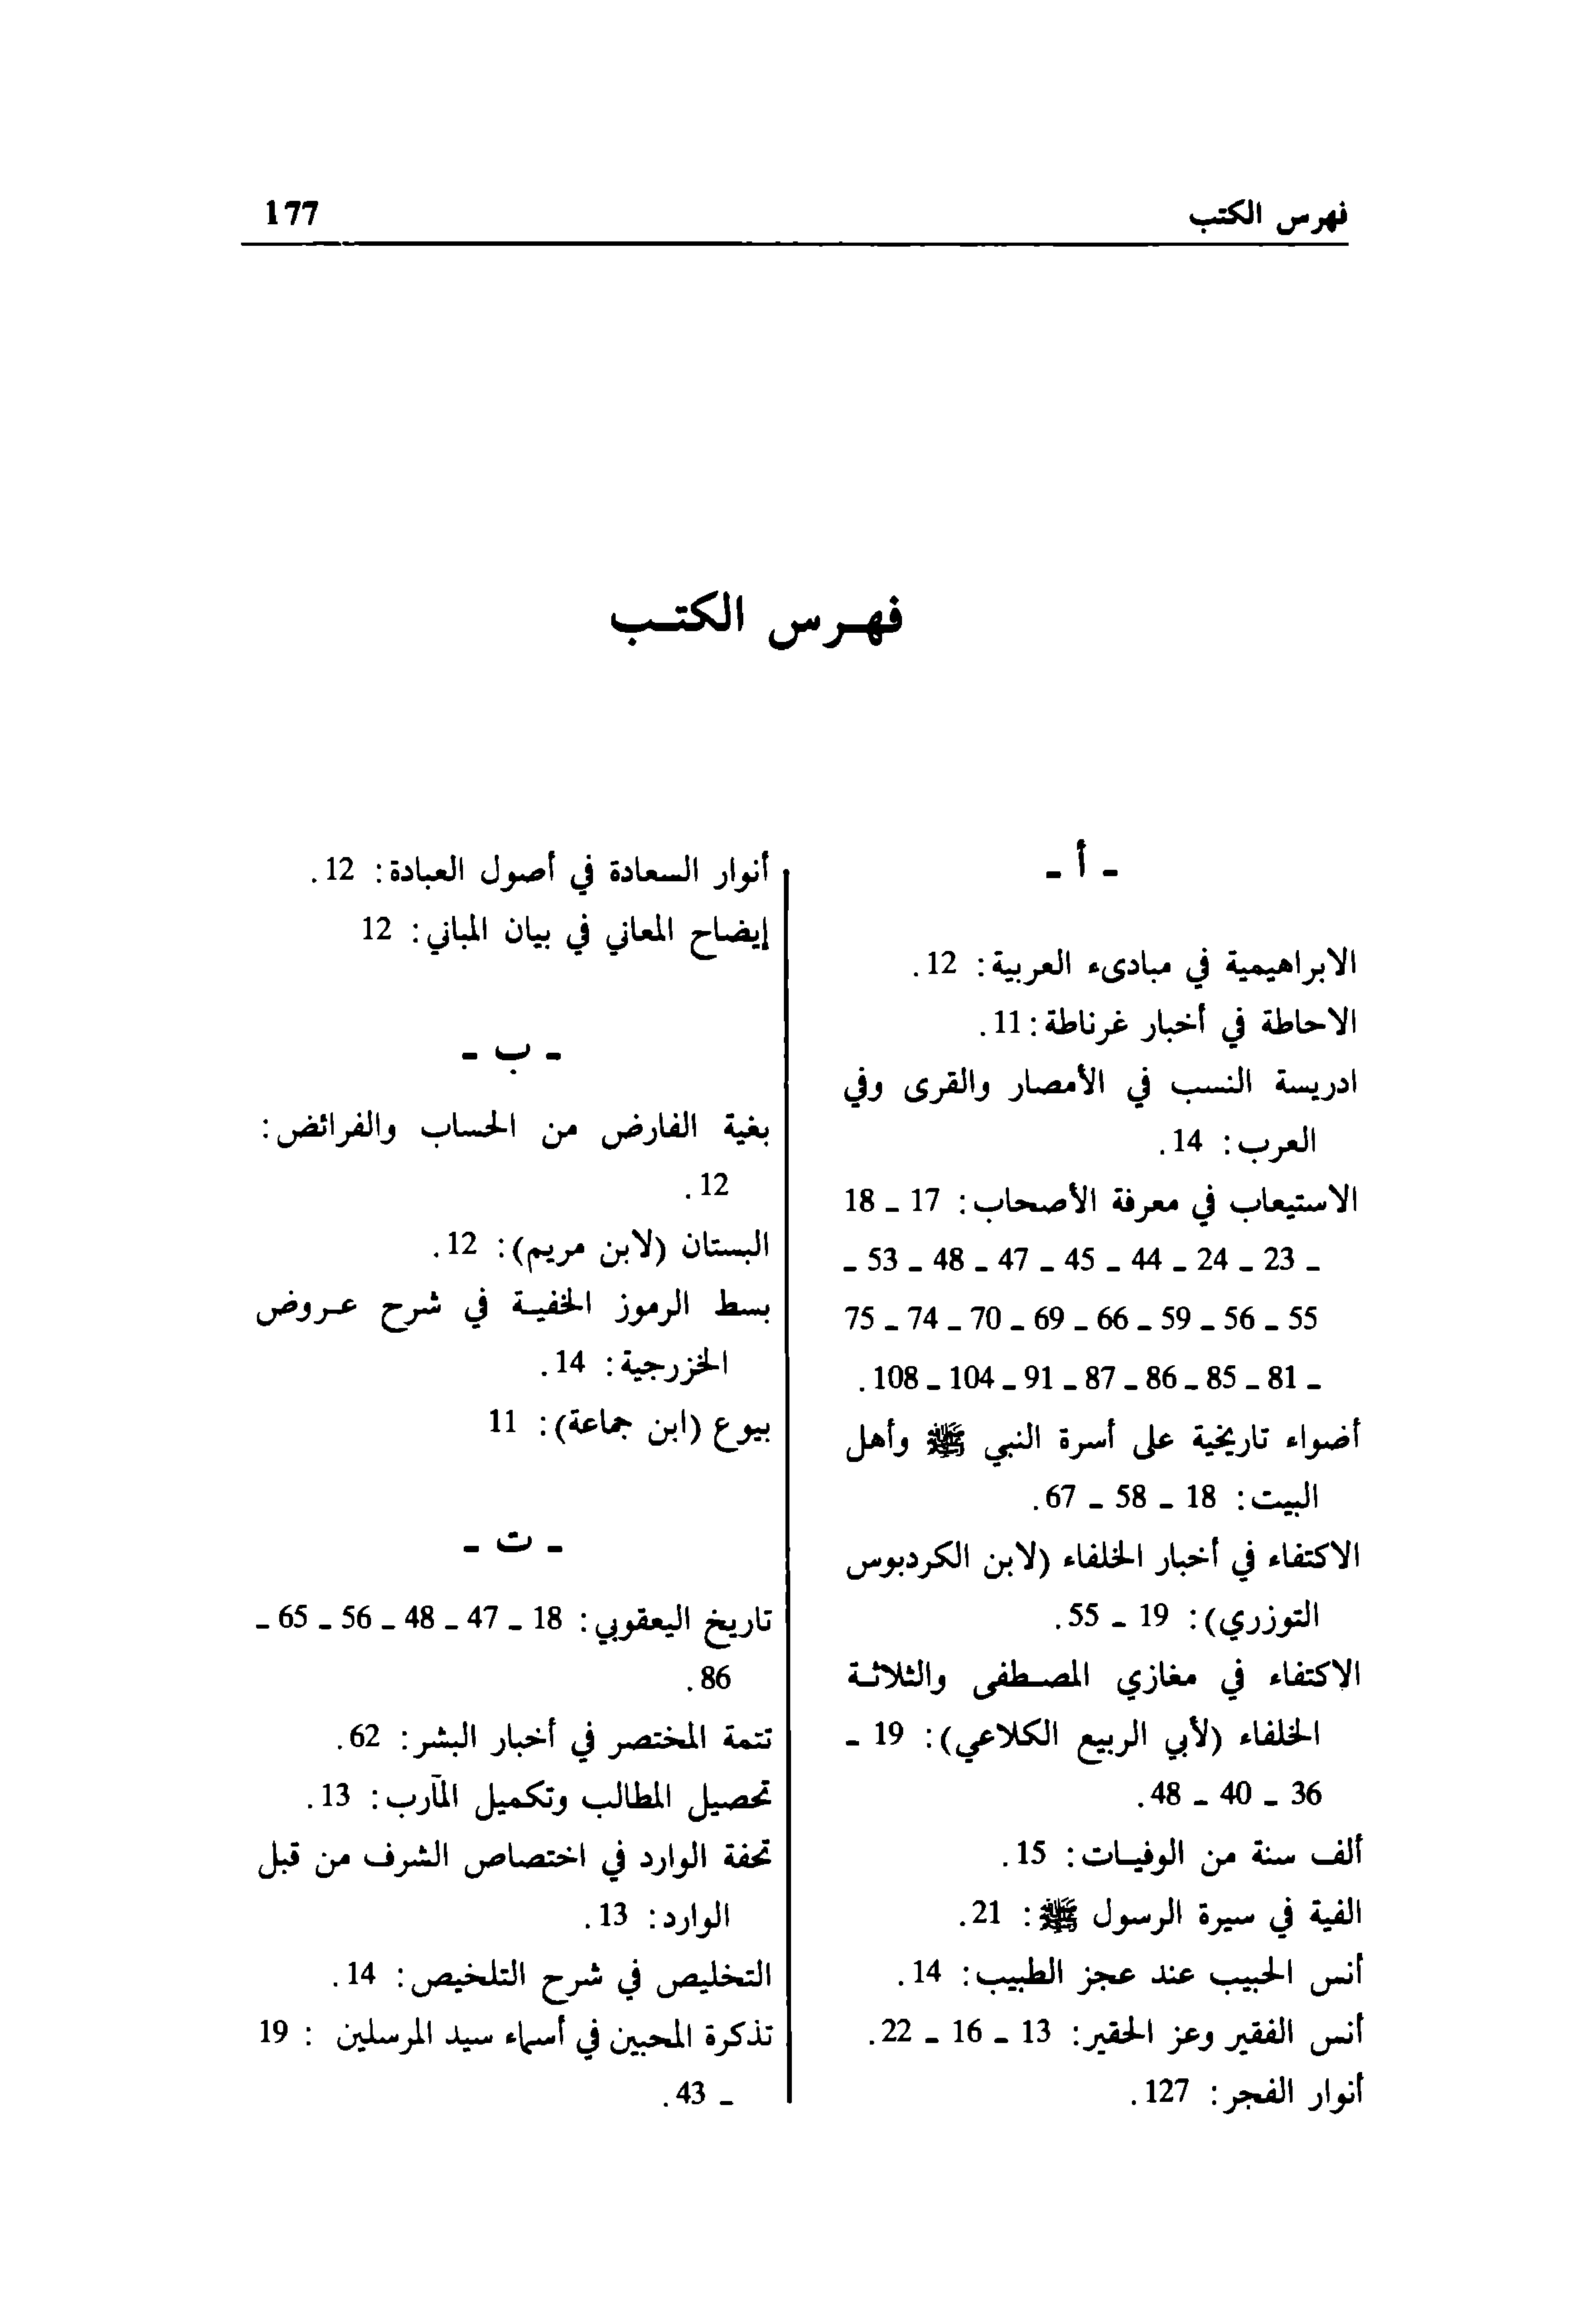 فهرس الكتب 177
فهرس الكتب
- أ -
الابراهيمية في مبادىء العربية: 12.
الاحاطة في أخبار غرناطة: 11.
ادريسة النسب في الأمصار والقرى وفي
العرب: 14.
الاستيعاب في معرفة الأصحاب: 17 - 18
- 23 - 24 - 44 - 45 - 47 - 48 - 53 -
55 - 56 - 59 - 66 - 69 - 70 - 74 - 75
- 81 - 85 - 86 - 87 - 91 - 104 - 108.
أضواء تاريخية على أسرة النبي ﷺ وأهل
البيت: 18 - 58 - 67.
الاكتفاء في أخبار الخلفاء (لابن الكردبوس
التوزري): 19 - 55.
الإكتفاء في مغازي المصطفى والثلاثة
الخلفاء (لأبي الربيع الكلاعي): 19 -
36 - 40 - 48.
ألف سنة من الوفيات: 15.
الفية في سيرة الرسول ﷺ: 21.
أنس الحبيب عند عجز الطبيب: 14.
أنس الفقير وعز الحقير: 13 - 16 - 22.
أنوار الفجر: 127.
أنوار السعادة في أصول العبادة: 12.
إيضاح المعاني في بيان المباني: 12
- ب -
بغية الفارض من الحساب والفرائض:
12.
البستان (لابن مريم): 12.
بسط الرموز الخفية في شرح عروض
الخزرجية: 14.
بيوع (ابن جماعة): 11
- ت -
تاريخ اليعقوبي: 18 - 47 - 48 - 56 - 65 -
86.
تتمة المختصر في أخبار البشر: 62.
تحصيل المطالب وتكميل المآرب: 13.
تحفة الوارد في اختصاص الشرف من قبل
الوارد: 13.
التخليص في شرح التلخيص: 14.
تذكرة المحبين في أسماء سيد المرسلين : 19
- 43.